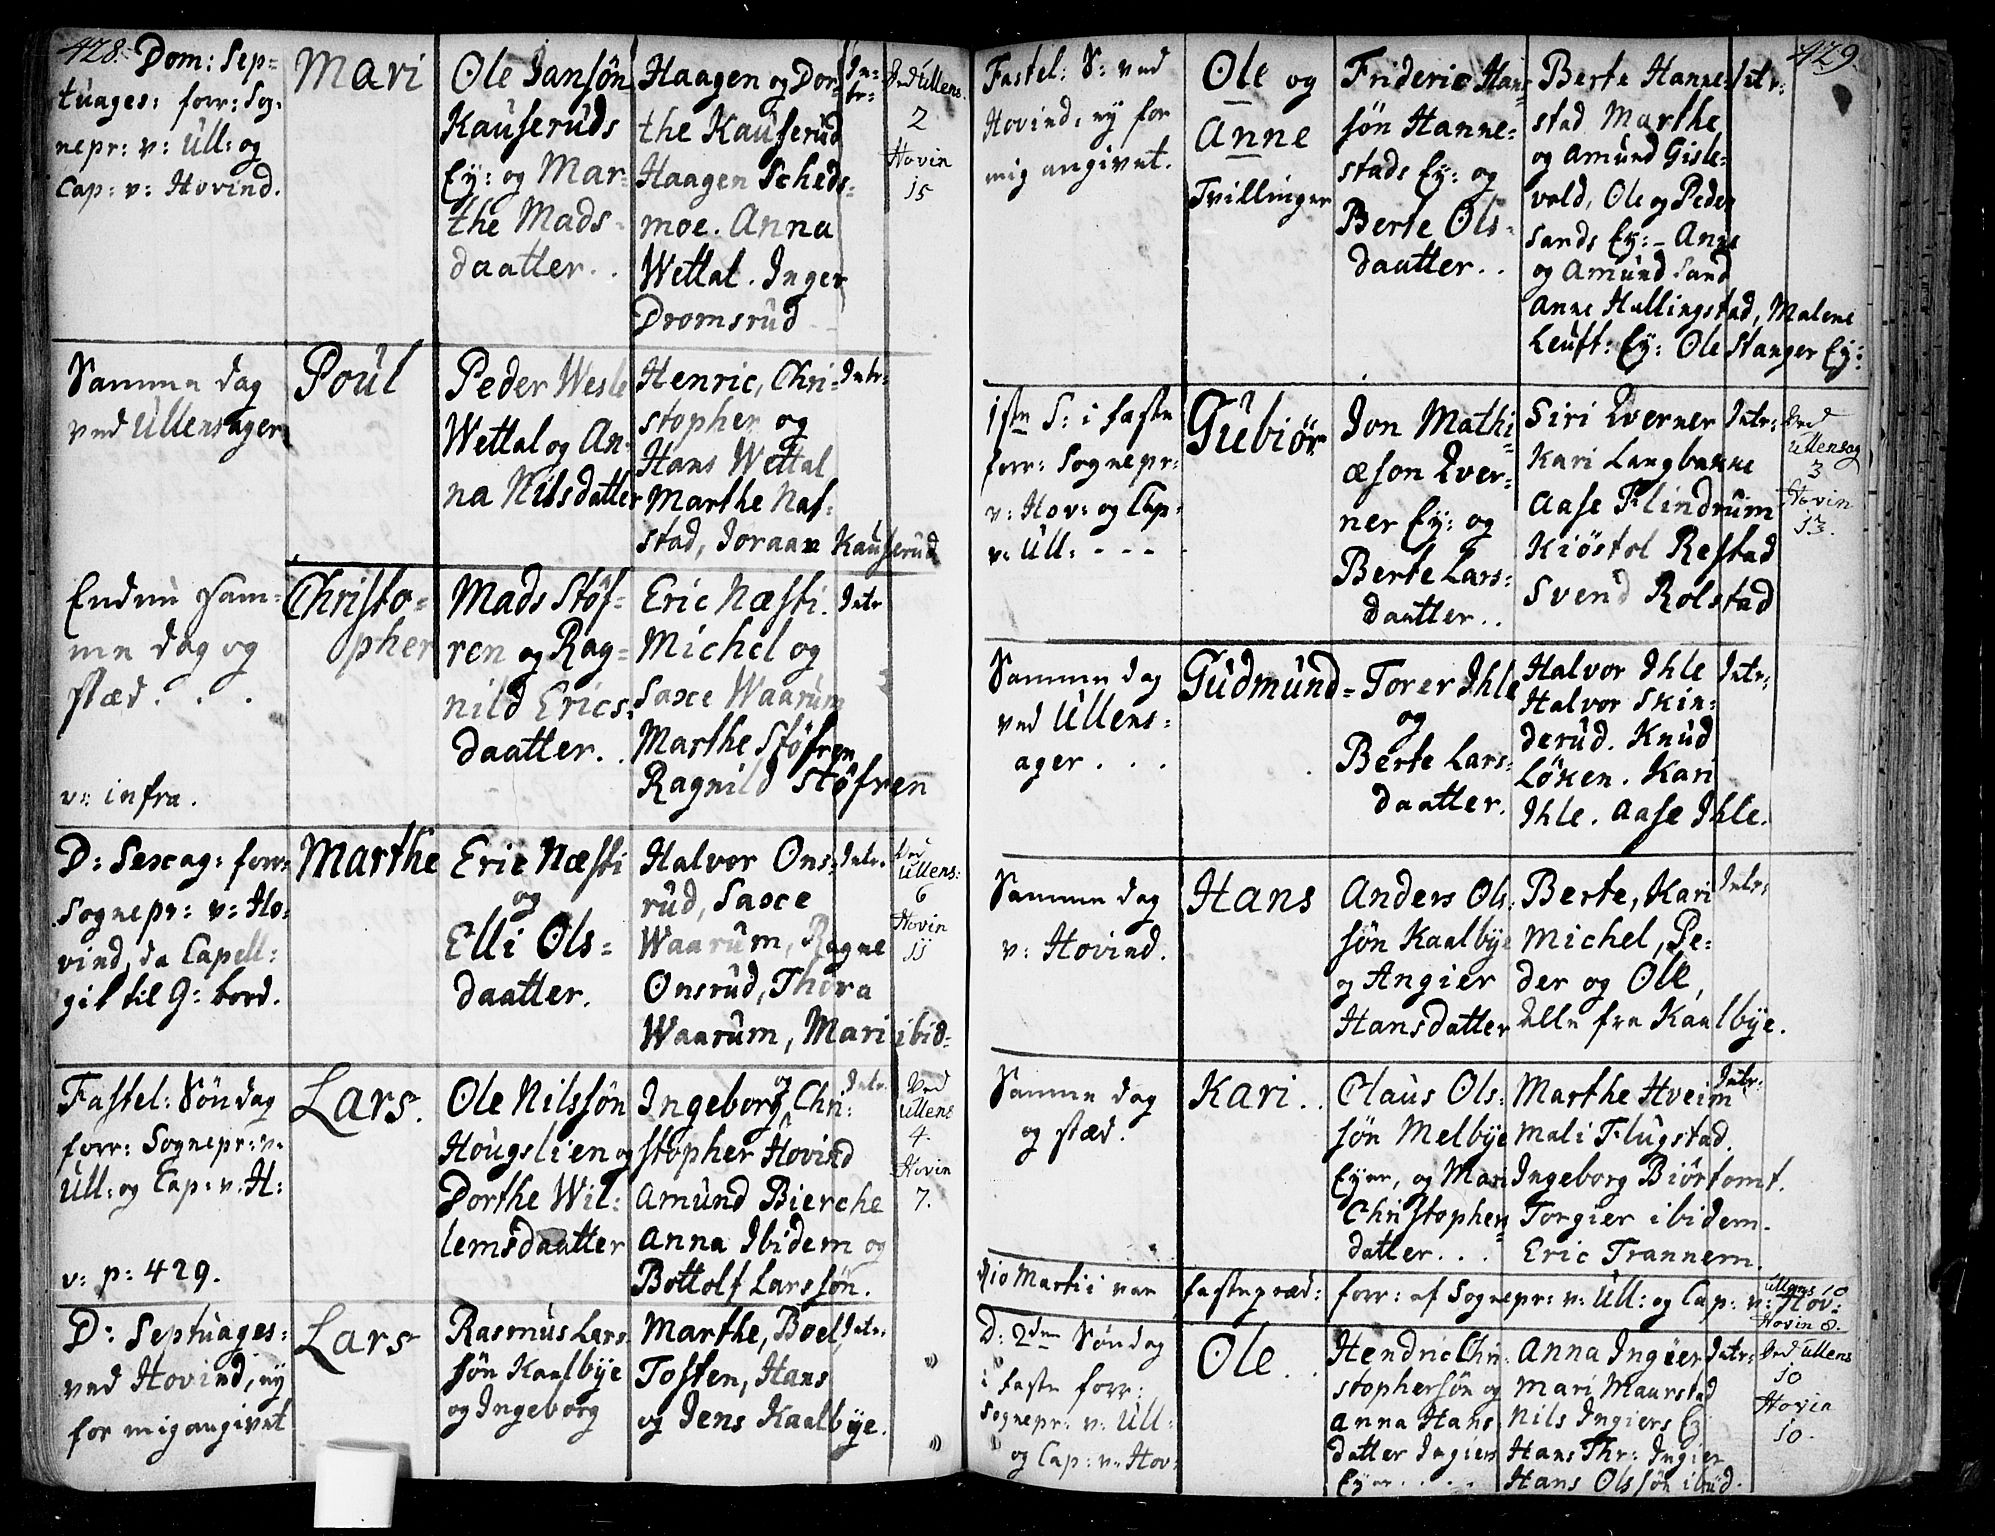 428.
Dom: Sep=
tuages: forr: Sog:
nepr: v: Ull: og
Cap: v: Hovind.
Mari
Ole Jansøn
Kauserüds
Ey: og Mar=
the Mads=
daatter..
Haagen og Dor=
the Kauserüd
Haagen Scheds=
moe. Anna
Wettal. Inger
Dromsrüd
In=
tr:
Ved Ullens.
2
Hovin
15
Samme dag
ved Ullensager
Poül
Peder Wesle
Wettal og An=
na Nilsdatter
Henric, Chri=
stopher og
Hans Wettal
Marthe Naf=
stad, Joraan Kauserüd
Intr:
Endnu sam=
me dag og
stæd. . .
v: infra.
Christo=
pher
Mads Støf=
ren og Rag=
nild Erics=
daatter..
Eric Næsti.
Michel og
Saxe Waarüm
Marthe Støfren
Ragnild Støfren
Intr
D: Sexag: forr:
Sognepr: v: Ho=
vind, da Capell:
gik til G: bord.
Marthe
Eric Næsti
og
Elli Ols=
daatter.
Halvor Ons=
rüd, Saxe
Waarüm, Ragne
Onsrüd, Thora
Waarüm, Mari ibid=
Intr.
Ved
Ullens:
6
Hovin
11
Fastel: Søndag
forr: Sognepr: v:
Ull: og Cap: v: H:
v: p: 429.
Lars.
Ole Nilssøn
Hougslien og
Dorthe Wil=
lemsdaatter
Ingeborg og Chri=
stopher Hovind
Amünd Bierche
Anna Ibidem og
Bottolf Larssøn.
Intr.
Ved
Ullens
4.
Hovin
7.
D: Septuages:
ved Hovind, ey
for mig angivet
Lars
Rasmüs Lars
søn Kaalbye
og Ingeborg
Marthe, Boel,
Tosten, Hans
og Jens Kaalbye.
Intr.
429.
Fastel: S: ved
Hovind, ey for
mig angivet.
Ole og
Anne
Tvillinger
Frideric Han=
søn Hanne=
stads Ey: og
Berte Ols=
daatter..
Berte Hanne=
stad Marthe
og Amünd Gisle=
vold, Ole og Peder
Sands Ey: - Anne
og Amünd Sand
Anne Hallingstad, Malene
Leuft: Ey: Ole Stanger Ey:
Intr:
1ste S: i faste
forr: Sognepr:
v: Hov: og Cap:
v: Ull: - - -
Gübiør
Jon Mathi=
æson Qver=
ner Ey: og
Berte Lars=
daatter..
Siri Qverner
Kari Langbakke
Aase Flindrüm
Kiøstol Restad
Svend Rolstad
Intr:
Ved
Ullensag
3
Hovin
13.
Samme dag
ved Ullens=
ager . . .
Güdmünd=
Torer Ihle
og
Berte Lars=
daatter.
Halvor Ihle
Halvor Skin=
derüd. Knüd
Løken. Kari
Ihle. Aase Ihle.
Intr:
Samme dag
v: Hovind.
Hans
Anders Ols=
søn Kaalbye
og Angier
Hansdatter
Berte, Kari
Michel, Pe=
der og Ole,
alle fra Kaalbye.
Intr:
Samme dag
og stæd.
Kari..
Claüs Ols=
søn Melbye
Eyer, og Mari
Christopher
datter. . .
Marthe Hveim
Mali Flügstad.
Ingeborg Biørtomt.
Torgier ibidem.
Eric Trannem.
Intr:
d 10 Martii var fastepræd: forr: af Sognepr: v: Ull: og Cap: v: Hov:
Ullens 10
Hovin 8.
D: 2den Søndag
i faste forr:
Sognepr: v: Ull:
og Cap: v: Hov:
Ole..
Hendric Chri=
stophersøn og
Anna Hans
datter Ingiers
Eyer. . . .
Anna Ingier
Mari Maurstad
Nils Ingiers Ey
Hans Thr: Ingier
Hans Olssøn ibid.
Intr:
Ved Ullens
10
Hovin
10.